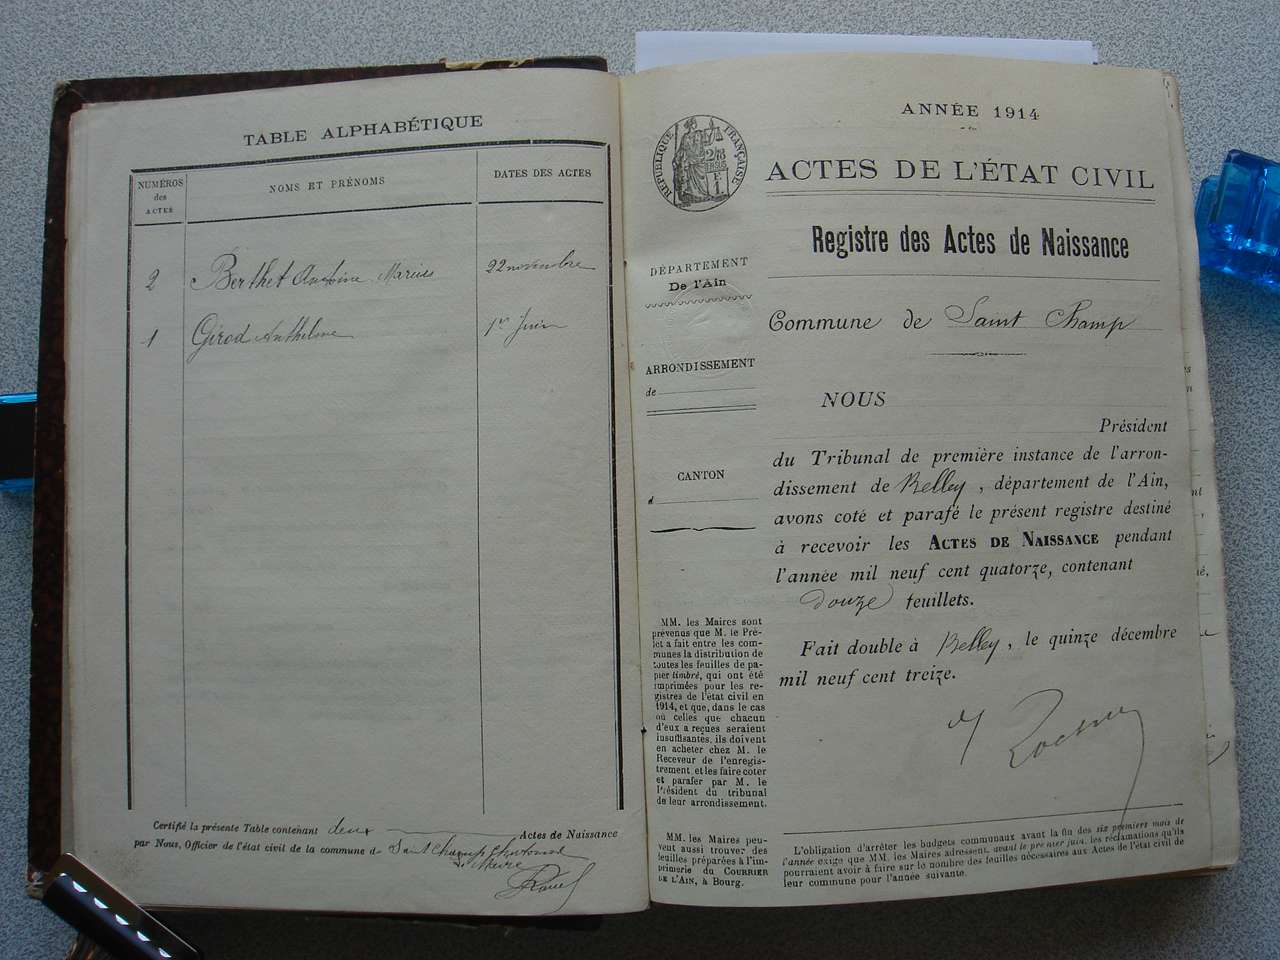 TABLE ALPHABÉTIQUE
NUMÉROS des ACTES
NOMS ET PRÉNOMS
DATES DES ACTES
2 Berthet Antoine Marius 22 novembre
1 Girod Anthelme 1er Juin
Certifié la présente Table contenant deux Actes de Naissance
par Nous, Officier de l'état civil de la commune d Saint Champ Chatonod
Le Maire
ANNÉE 1914
RÉPUBLIQUE FRANÇAISE
ACTES DE L'ÉTAT CIVIL
Registre des Actes de Naissance
DÉPARTEMENT
De l'Ain
Commune de Saint Champ
ARRONDISSEMENT
de
CANTON
d
NOUS
Président
du Tribunal de première instance de l'arron-
dissement de Belley, département de l'Ain,
avons coté et parafé le présent registre destiné
à recevoir les ACTES DE NAISSANCE pendant
l'année mil neuf cent quatorze, contenant
douze feuillets.
Fait double à Belley, le quinze décembre
mil neuf cent treize.
MM. les Maires sont
prévenus que M. le Pré-
fet a fait entre les com-
munes la distribution de
toutes les feuilles de pa-
pier timbré, qui ont été
imprimées pour les re-
gistres de l'état civil en
1914, et que, dans le cas
où celles que chacun
d'eux a reçues seraient
insuffisantes, ils doivent
en acheter chez M. le
Receveur de l'enregis-
trement et les faire coter
et parafer par M. le
Président du tribunal
de leur arrondissement.
MM. les Maires peu-
vent aussi trouver des
feuilles préparées à l'im-
primerie du COURRIER
DE L'AIN, à Bourg.
L'obligation d'arrêter les budgets communaux avant la fin des six premiers mois de
l'année exige que MM. les Maires adressent, avant le premier juin, les réclamations qu'ils
pourraient avoir à faire sur le nombre des feuilles nécessaires aux Actes de l'état civil de
leur commune pour l'année suivante.